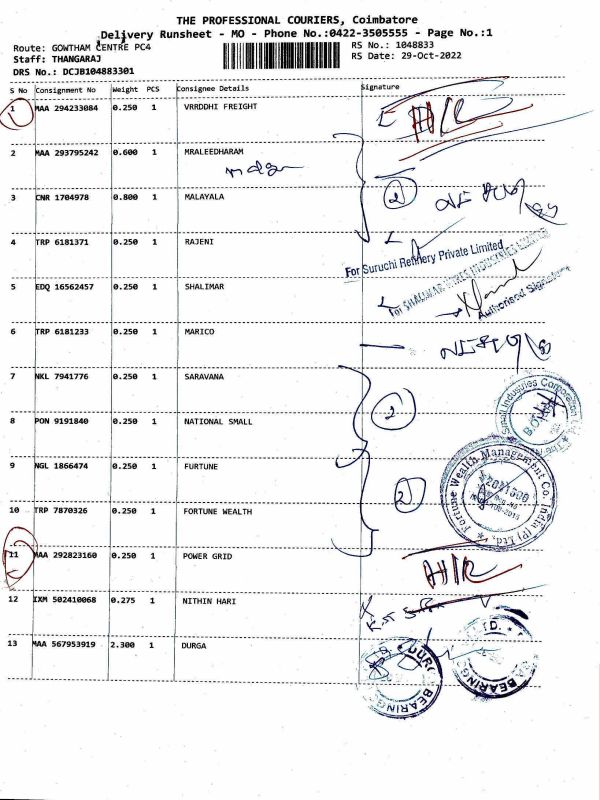 THE PROFESSIONAL COURIERS, Coimbatore
Delivery Runsheet - MO - Phone No.:0422-3505555 - Page No.:1
Route: GOWTHAM CENTRE PC4
RS No.: 1048833
Staff: THANGARAJ
RS Date: 29-Oct-2022
DRS No.: DCJB104883301
S No Consignment No Weight PCS Consignee Details Signature
1 MAA 294233084 0.250 1 VRRDDHI FREIGHT
2 MAA 293795242 0.600 1 MRALEEDHARAM
2
3 CNR 1704978 0.800 1 MALAYALA
4 TRP 6181371 0.250 1 RAJENI
For Suruchi Refinery Private Limited
5 EDQ 16562457 0.250 1 SHALIMAR
Authorised Signatory
6 TRP 6181233 0.250 1 MARICO
7 NKL 7941776 0.250 1 SARAVANA
2
8 PON 9191840 0.250 1 NATIONAL SMALL
Small Industries Corporation
9 NGL 1866474 0.250 1 FURTUNE
2
Fortune Wealth Management Co. India (P) Ltd.
10 TRP 7870326 0.250 1 FORTUNE WEALTH
11 MAA 292823160 0.250 1 POWER GRID
12 IXM 502410068 0.275 1 NITHIN HARI
13 MAA 567953919 2.300 1 DURGA
BEARING
BEARING